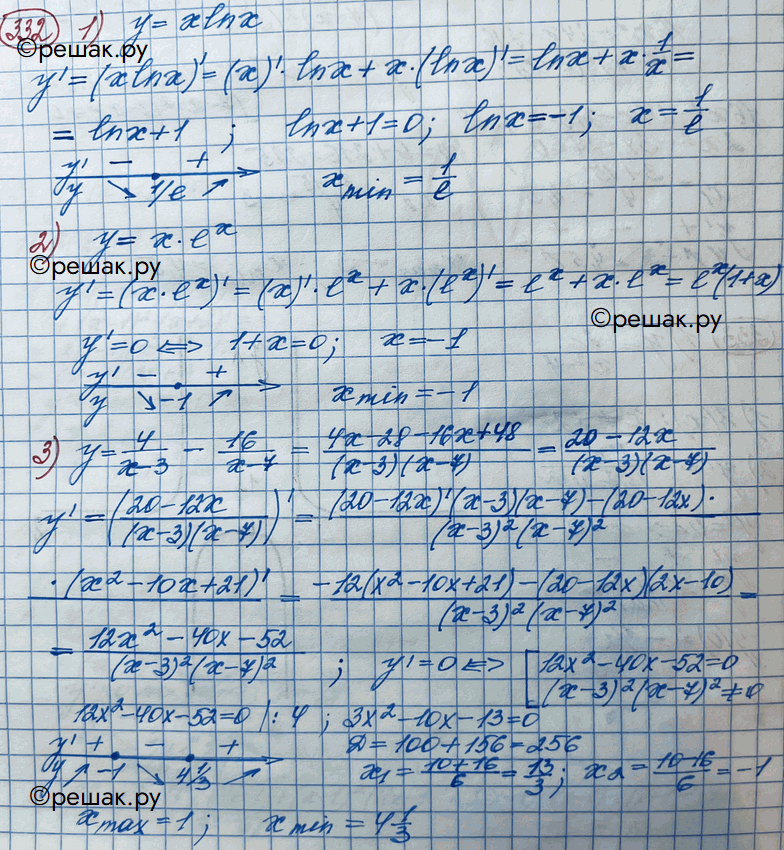 332 1) y = x ln x
©решак.ру
y' = (x ln x)' = (x)' · ln x + x · (ln x)' = ln x + x · 1/x =
= ln x + 1 ; ln x + 1 = 0 ; ln x = -1 ; x = 1/e
y' - +
y ↘ 1/e ↗ x min = 1/e
2) y = x · e^x
©решак.ру
y' = (x · e^x)' = (x)' · e^x + x · (e^x)' = e^x + x · e^x = e^x(1+x)
©решак.ру
y' = 0 <=> 1 + x = 0 ; x = -1
y' - +
y ↘ -1 ↗ x min = -1
3) y = 4/(x-3) - 16/(x-7) = (4x-28-16x+48)/((x-3)(x-7)) = (20-12x)/((x-3)(x-7))
y' = ((20-12x)/((x-3)(x-7)))' = ((20-12x)'(x-3)(x-7)-(20-12x)·)/((x-3)²(x-7)²)
·(x²-10x+21)' = (-12(x²-10x+21)-(20-12x)(2x-10))/((x-3)²(x-7)²) =
= (12x²-40x-52)/((x-3)²(x-7)²) ; y' = 0 <=> [12x²-40x-52=0
(x-3)²(x-7)²≠0
12x²-40x-52=0 |:4 ; 3x²-10x-13=0
y' + - + D = 100+156 = 256
y ↗ -1 ↘ 4 1/3 ↗ x₁ = (10+16)/6 = 13/3 ; x₂ = (10-16)/6 = -1
©решак.ру
x max = 1 ; x min = 4 1/3